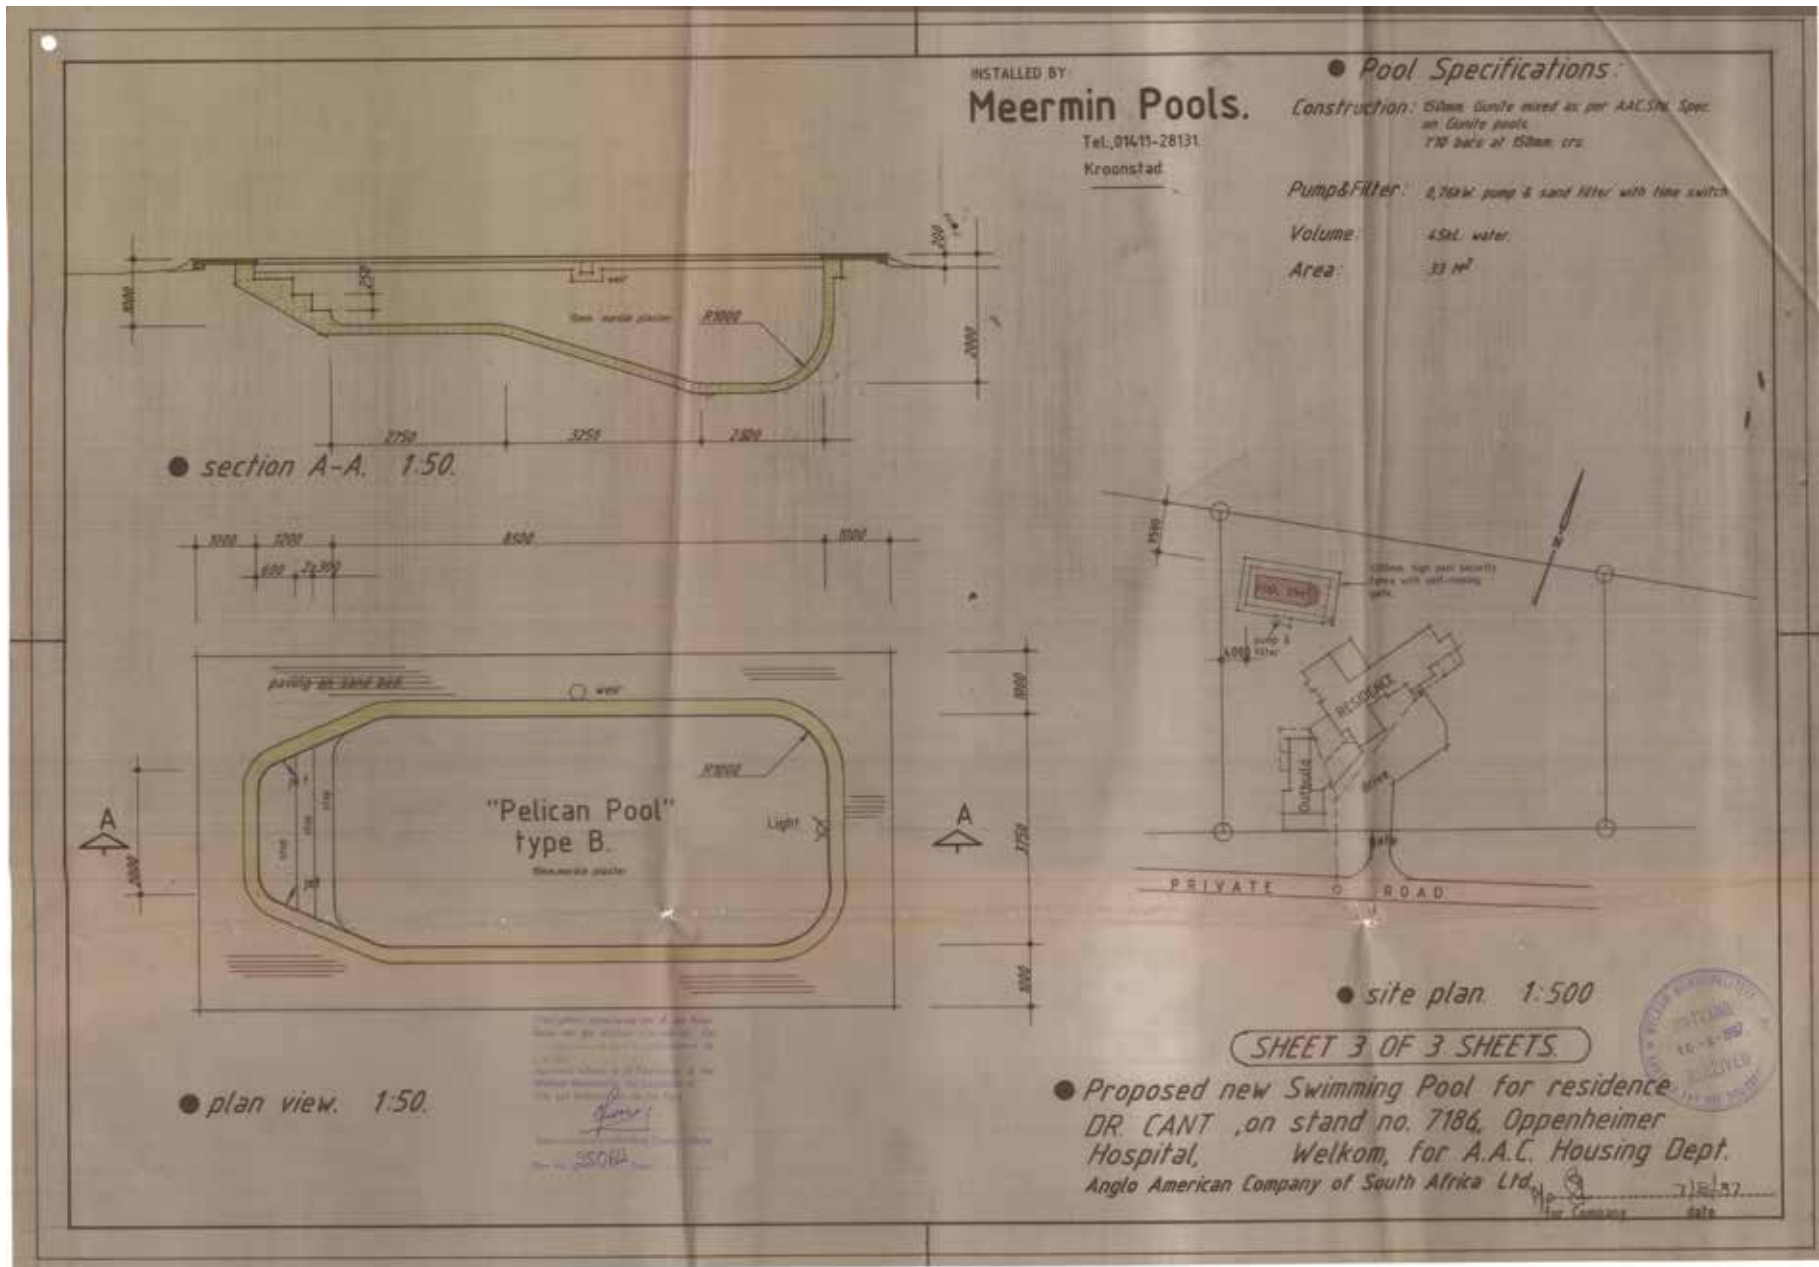 INSTALLED BY:
Meermin Pools.
Tel.,01411-28131.
Kroonstad
Pool Specifications:
Construction: 150mm. Gunite mixed as per AAC.Std. Spec.
on Gunite pools.
Y10 bars at 150mm. crs.
Pump&Filter: 0,76kW. pump & sand filter with time switch
Volume: 45kl. water.
Area: 33 M²
200
1000
250
weir
10mm. marble plaster
R1000
2000
2750
3250
2500
section A-A. 1:50.
1000
1200
8500
1000
600
2x300
paving on sand bed.
weir
R1000
1000
A
2000
step
step
step
"Pelican Pool"
type B.
10mm.marble plaster
Light
A
3750
1000
plan view. 1:50.
3500
N
high pool security
fence with self-closing
gate.
pump &
filter
4000
RESIDENCE
Outbuild
drive
gate
PRIVATE ROAD
site plan. 1:500
SHEET 3 OF 3 SHEETS.
RECEIVED
Proposed new Swimming Pool for residence
DR. CANT ,on stand no. 7186, Oppenheimer
Hospital, Welkom, for A.A.C. Housing Dept.
Anglo American Company of South Africa Ltd.
for Company
date